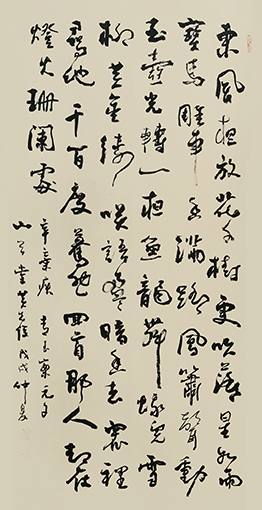 東風夜放花千樹更吹落星如雨
寶馬雕車香滿路風簫聲動
玉壺光轉一夜魚龍舞蛾兒雪
柳黃金縷笑語盈盈暗香去眾裡
尋他千百度驀然回首那人却在
燈火珊闌處
辛棄疾 青玉案元夕
戊戌仲夏